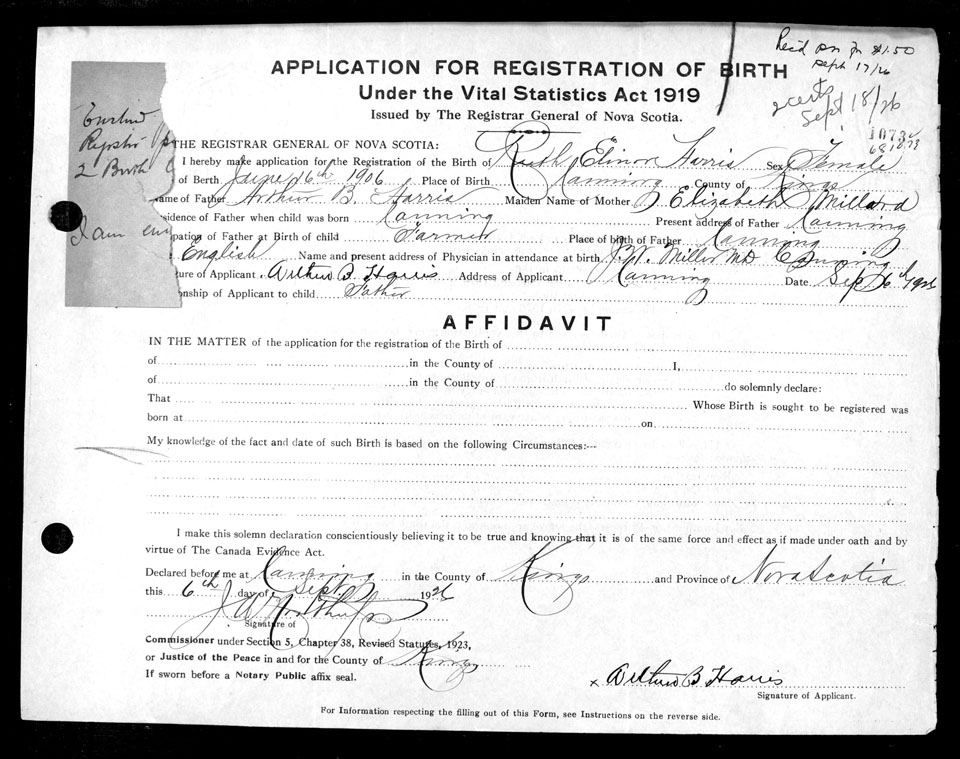 Rec'd $1.50
Sept 17/26
APPLICATION FOR REGISTRATION OF BIRTH
2 certs
Sept 18/26
Under the Vital Statistics Act 1919
Issued by The Registrar General of Nova Scotia.
2 Birth
I am
THE REGISTRAR GENERAL OF NOVA SCOTIA:
I hereby make application for the Registration of the Birth of Ruth Elinor Harris Sex Female
of Berth June 16th 1906 Place of Birth Canning County of Kings
ame of Father Arthur B. Harris Maiden Name of Mother Elizabeth Millard
sidence of Father when child was born Canning Present address of Father Canning
pation of Father at Birth of child Farmer Place of birth of Father Canning
English Name and present address of Physician in attendance at birth Miller MD Canning
ure of Applicant Arthur B Harris Address of Applicant Canning Date Sep 6th 1926
onship of Applicant to child Father
AFFIDAVIT
IN THE MATTER of the application for the registration of the Birth of
of in the County of I,
of in the County of do solemnly declare:
That Whose Birth is sought to be registered was
born at on
My knowledge of the fact and date of such Birth is based on the following Circumstances:--
I make this solemn declaration conscientiously believing it to be true and knowing that it is of the same force and effect as if made under oath and by
virtue of The Canada Evidence Act.
Declared before me at Canning in the County of Kings and Province of Nova Scotia
this 6th day of Sept. 1926
Signature of
Commissioner under Section 5, Chapter 38, Revised Statutes, 1923,
or Justice of the Peace in and for the County of Kings
If sworn before a Notary Public affix seal.
x Arthur B Harris
Signature of Applicant.
For Information respecting the filling out of this Form, see Instructions on the reverse side.